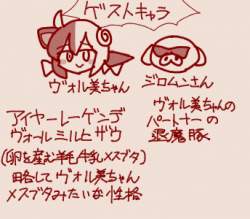 ゲストキャラ
ヴォル美ちゃん
ジロムンさん
アイヤーレーゲンデ
ヴォールミルヒザウ
(卵を産む羊毛牛乳メスブタ)
略してヴォル美ちゃん
メスブタみたいな性格
ヴォル美ちゃんの
パートナーの
退魔豚